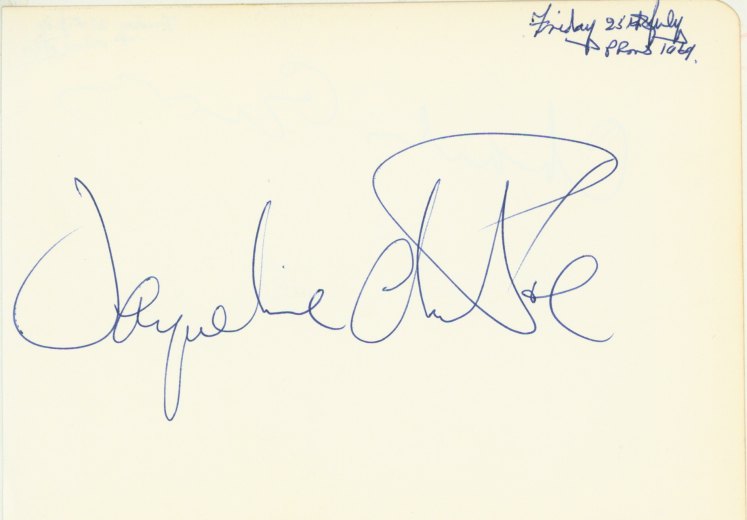 Friday 25th July
Proms 1969.
Jacqueline du Pré